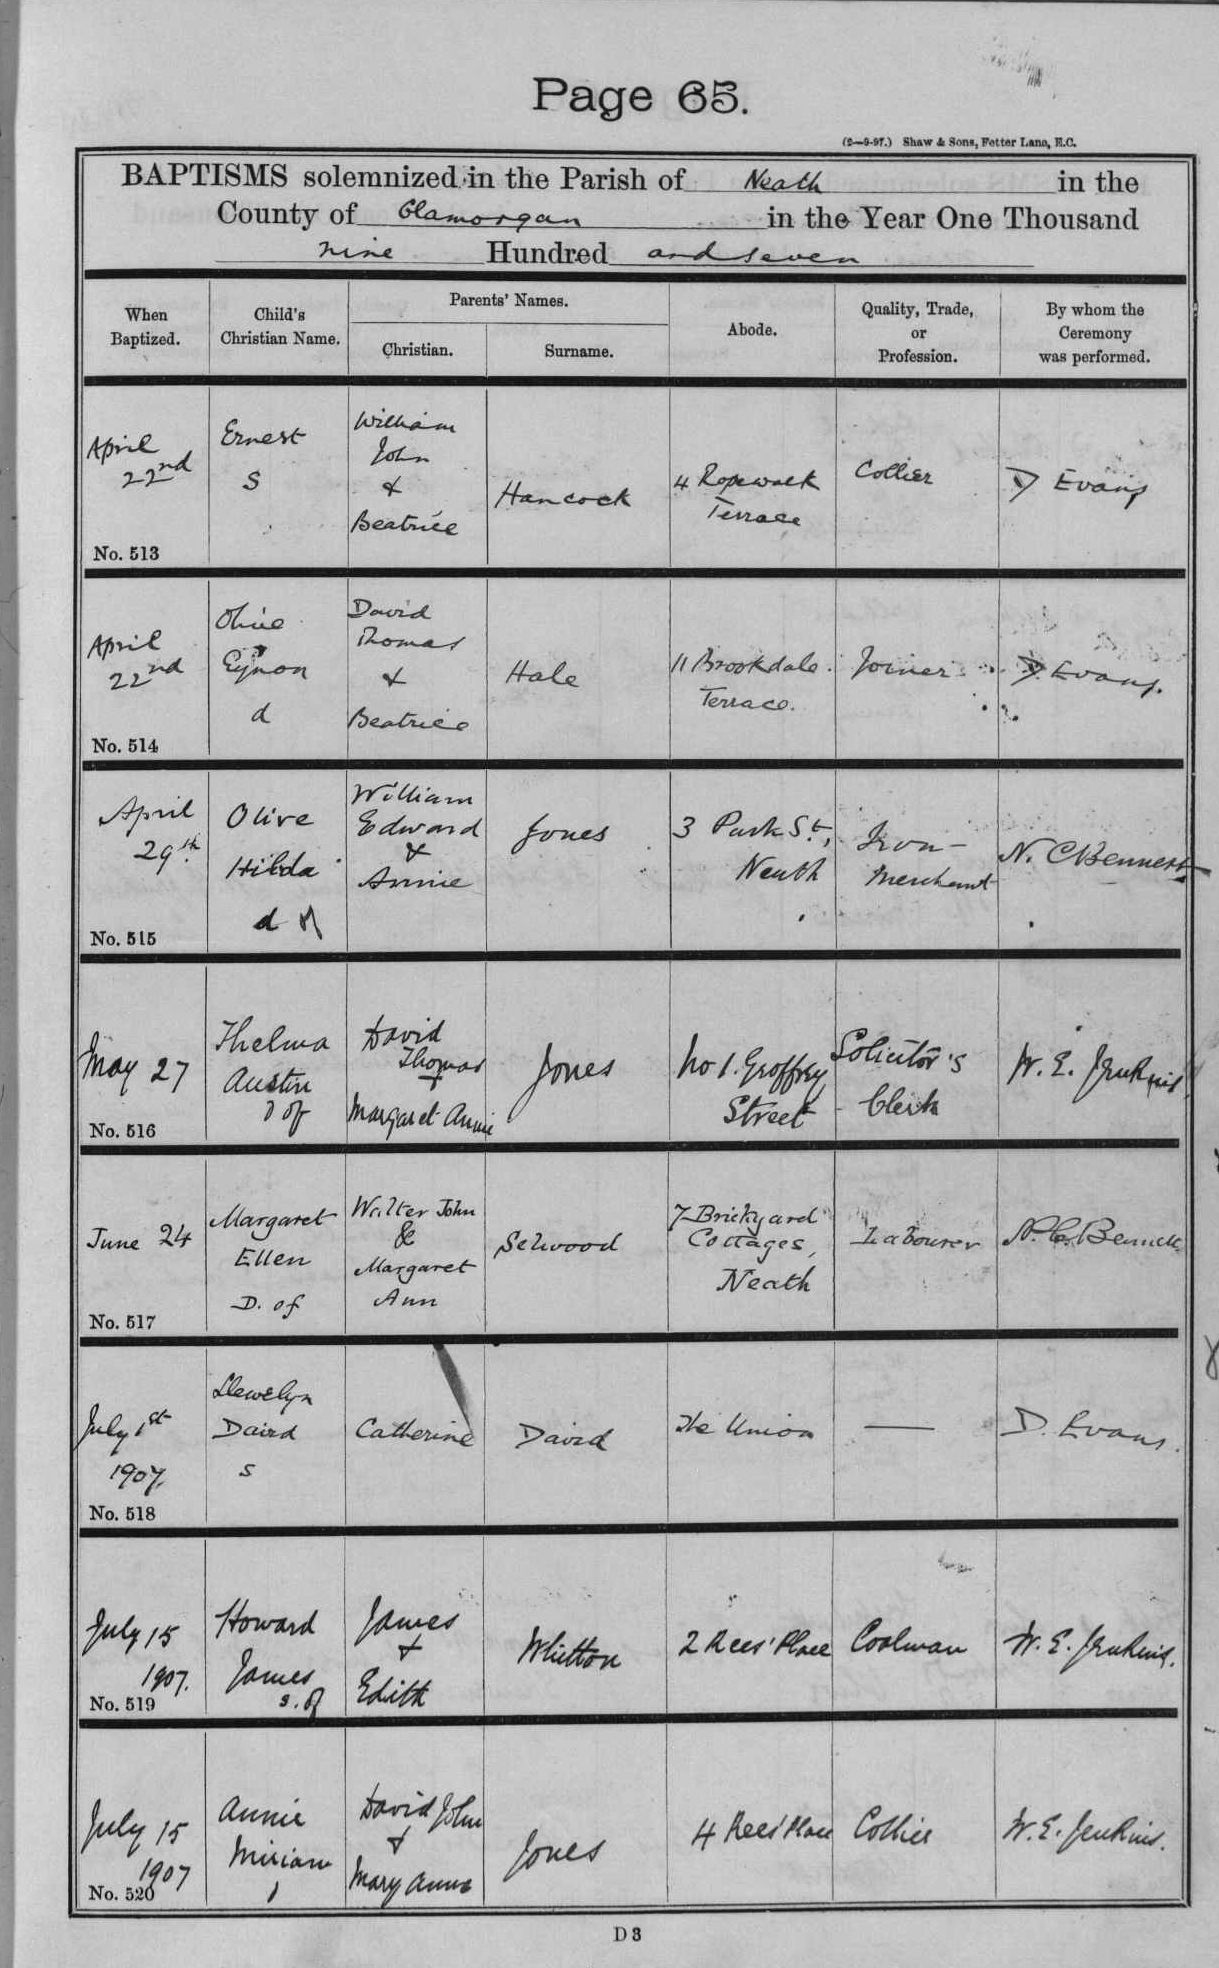 Page 65.
(2—9-97.) Shaw & Sons, Fetter Lane, E.C.
BAPTISMS solemnized in the Parish of Neath in the
County of Glamorgan in the Year One Thousand
nine Hundred and seven
When Baptized.
Child's Christian Name.
Parents' Names.
Christian.
Surname.
Abode.
Quality, Trade, or Profession.
By whom the Ceremony was performed.
April
22nd
No. 513
Ernest
S
William
John
&
Beatrice
Hancock
4 Ropewalk
Terrace
Collier
D Evans
April
22nd
No. 514
Olive
Eynon
d
David
Thomas
&
Beatrice
Hale
11 Brookdale
Terrace.
Joiner
D. Evans.
April
29th
No. 515
Olive
Hilda
d of
William
Edward
&
Annie
Jones
3 Park St,
Neath
Iron-
Merchant
N. C Bennett
May 27
No. 516
Thelma
Austin
D of
David
Thomas
+
Margaret Annie
Jones
No 1. Groffrey
Street
Solicitor's
Clerk
W. E. Jenkins
June 24
No. 517
Margaret
Ellen
D. of
Walter John
&
Margaret
Ann
Selwood
7 Brickyard
Cottages,
Neath
Labourer
N. C. Bennett
July 1st
1907.
No. 518
Llewelyn
David
S
Catherine
David
The Union
—
D. Evans.
July 15
1907.
No. 519
Howard
James
s. of
James
+
Edith
Whitton
2 Rees' Place
Coalman
W. E. Jenkins.
July 15
1907
No. 520
Annie
Miriam
David John
+
Mary Anna
Jones
4 Rees' Place
Collier
W. E. Jenkins.
D 3